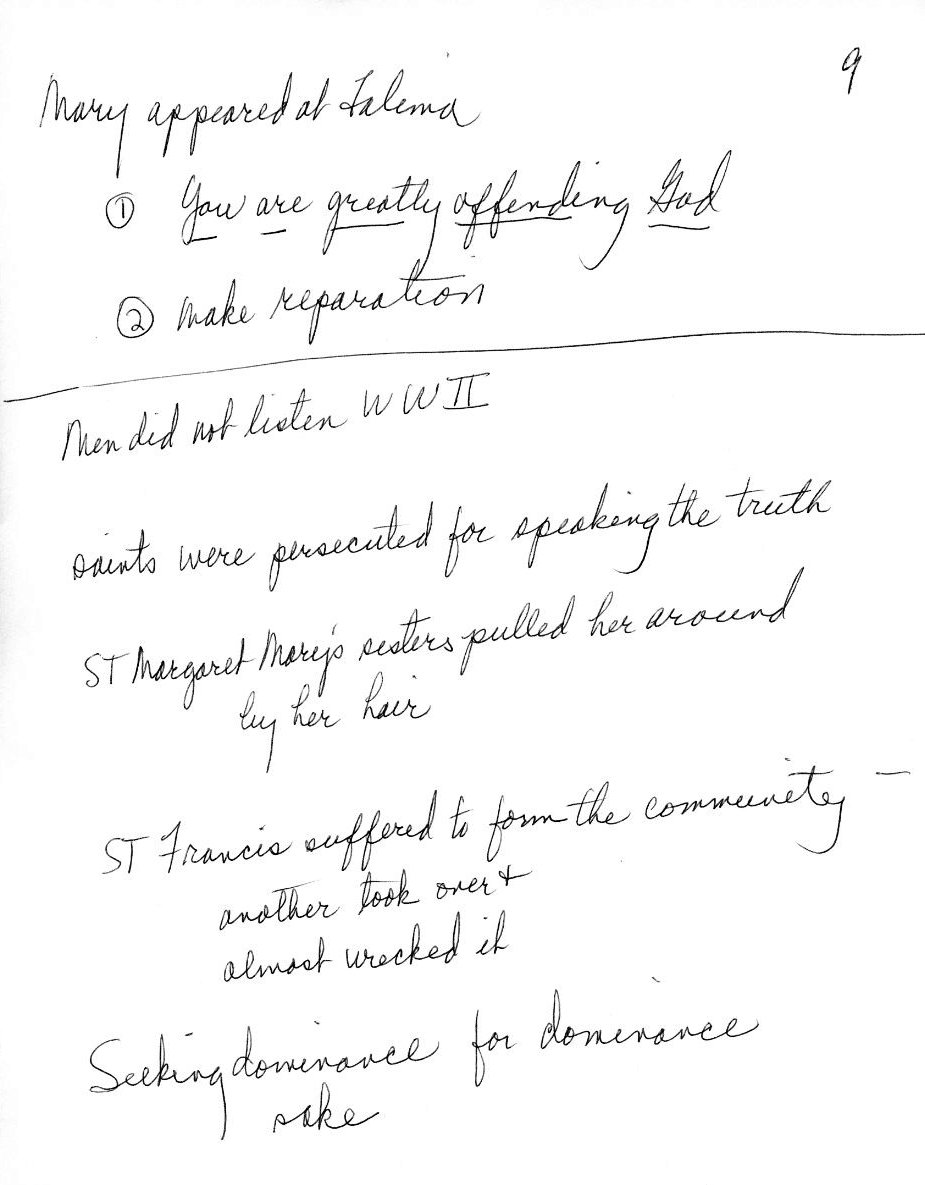 9
Mary appeared at Fatima
① You are greatly offending God
② make reparation
Men did not listen WW II
saints were persecuted for speaking the truth
ST Margaret Mary's sisters pulled her around
by her hair
ST Francis suffered to form the community –
another took over +
almost wrecked it
Seeking dominance for dominance
sake